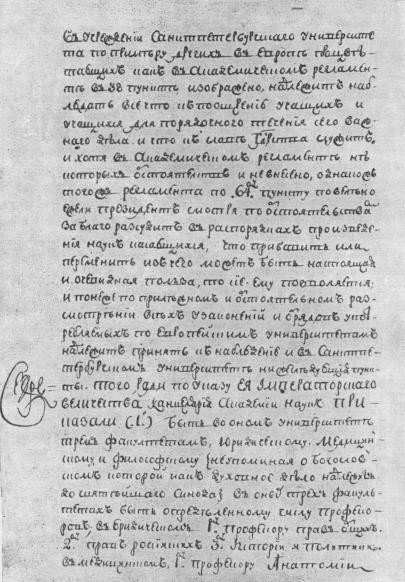 въ учреждении Санктпетербургскаго университе
та по примѣру другихъ въ Европѣ процвѣ-
тающихъ какъ въ Академическомъ регламен-
тѣ въ пунктѣ изображено, надлежитъ наб-
людать все что къ поощрению учащихъ и
учащихся для порядочнаго течения сего важ-
наго дѣла. и что къ славѣ служитъ,
и хотя въ Академическомъ регламентѣ нѣ
которыхъ обстоятельствъ и не внесено, однакожъ
тогожъ регламента по 64му пункту повелѣно
ежели президентъ смотря по обстоятельствамъ
заблаго разсудитъ въ распорядкахъ произведе
ния наукъ надлежащихъ, что прибавить или
перемѣнить изъ чего можетъ быть настоящая
и очевидная польза, то сие ему позволяется;
и понеже по прилѣжномъ и обстоятельномъ раз
смотрѣнии всѣхъ узаконений и обрядовъ упот
ребляемыхъ по Европейскимъ университетамъ
надлежитъ принять къ наблюдению и въ Санктпе
тербургскомъ университетѣ нижеслѣдующия пунк
ты. того ради по указу ЕЯ ИМПЕРАТОРСКАГО
величества канцелярия Академии наукъ ПРИ
КАЗАЛИ (1.) быть во ономъ университетѣ
тремъ факультетамъ, юридическому. Медицин
скому, и философскому (не упоминая о богослов
скомъ которой какъ духовное дѣло надлежитъ
до святѣйшаго Синода) въ оней трехъ факуль
тетахъ быть опредѣленному числу професо
ровъ, въ юридическомъ. 1. Професору правъ общихъ.
2. правъ российскихъ 3. Истории и политики
въ медицинскомъ, 1. професору Анатомии